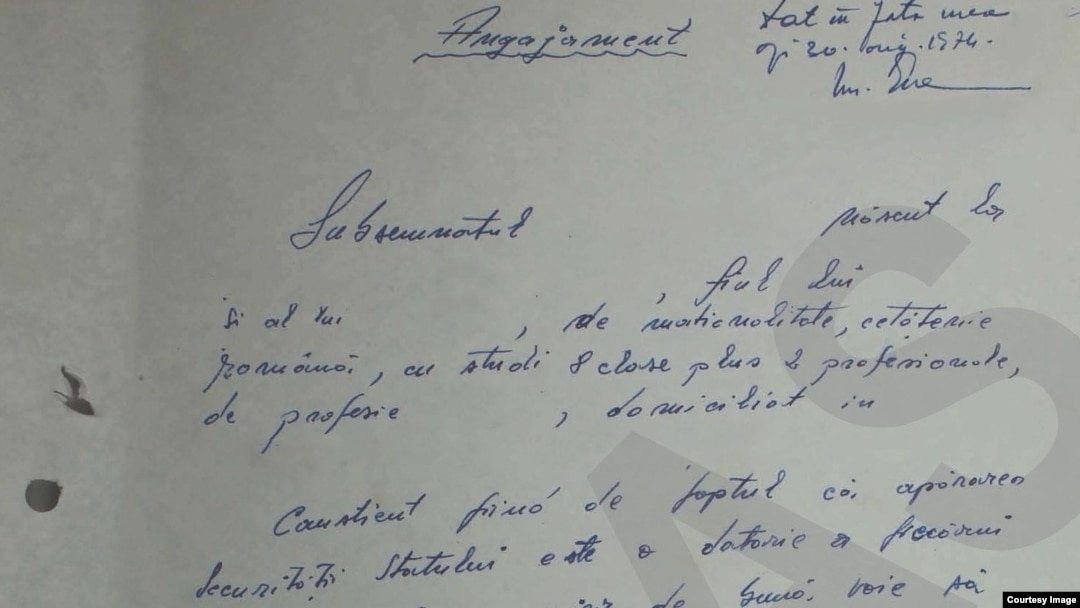 Angajament
Dat în fața mea
azi 20. aug. 1974.
Subsemnatul născut la
, fiul lui
și al lui , de naționalitate, cetățenie
română, cu studi 8 clase plus 2 profesionale,
de profesie , domiciliat in
Conștient fiind de faptul că apărarea
securității statului este o datorie a fiecărui
de bună voie să
AS
Courtesy Image